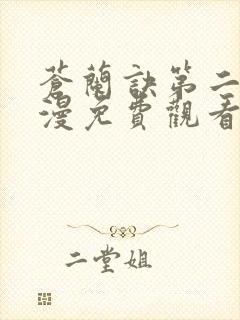 蒼蘭訣第二
漫免費觀看
二堂姐